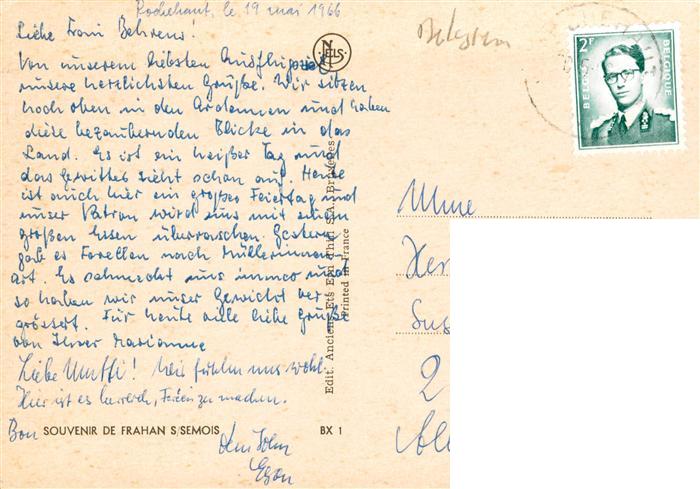 Rochehaut, le 19 mai 1966
Liebe Frau Behrens!
Von unserem liebsten Ausflugsziel
unsere herzlichsten Grüße. Wir sitzen
hoch oben in den Ardennen und haben
diese bezaubernden Blicke in das
Land. Es ist ein heißer Tag und
das Gewitter zieht schon auf. Heute
ist auch hier ein großer Feiertag und
unser Patron wird uns mit einem
großen Essen überraschen. Gestern
gab es Forellen nach Müllerinnen-
art. Es schmeckt uns immer und
so haben wir unser Gewicht ver-
grössert. Für heute viele liebe Grüße
von Ihrer Marianne
Liebe Mutti! Wir fühlen uns wohl.
Hier ist es herrlich, Ferien zu machen.
Dein Sohn
Egon
Bon SOUVENIR DE FRAHAN S/SEMOIS BX 1
NELS
Edit. Anciens Ets Ern. Thill S.A. Bruxelles
Printed in France
Belgien
2F
BELGIE BELGIQUE
Mme
Her
2